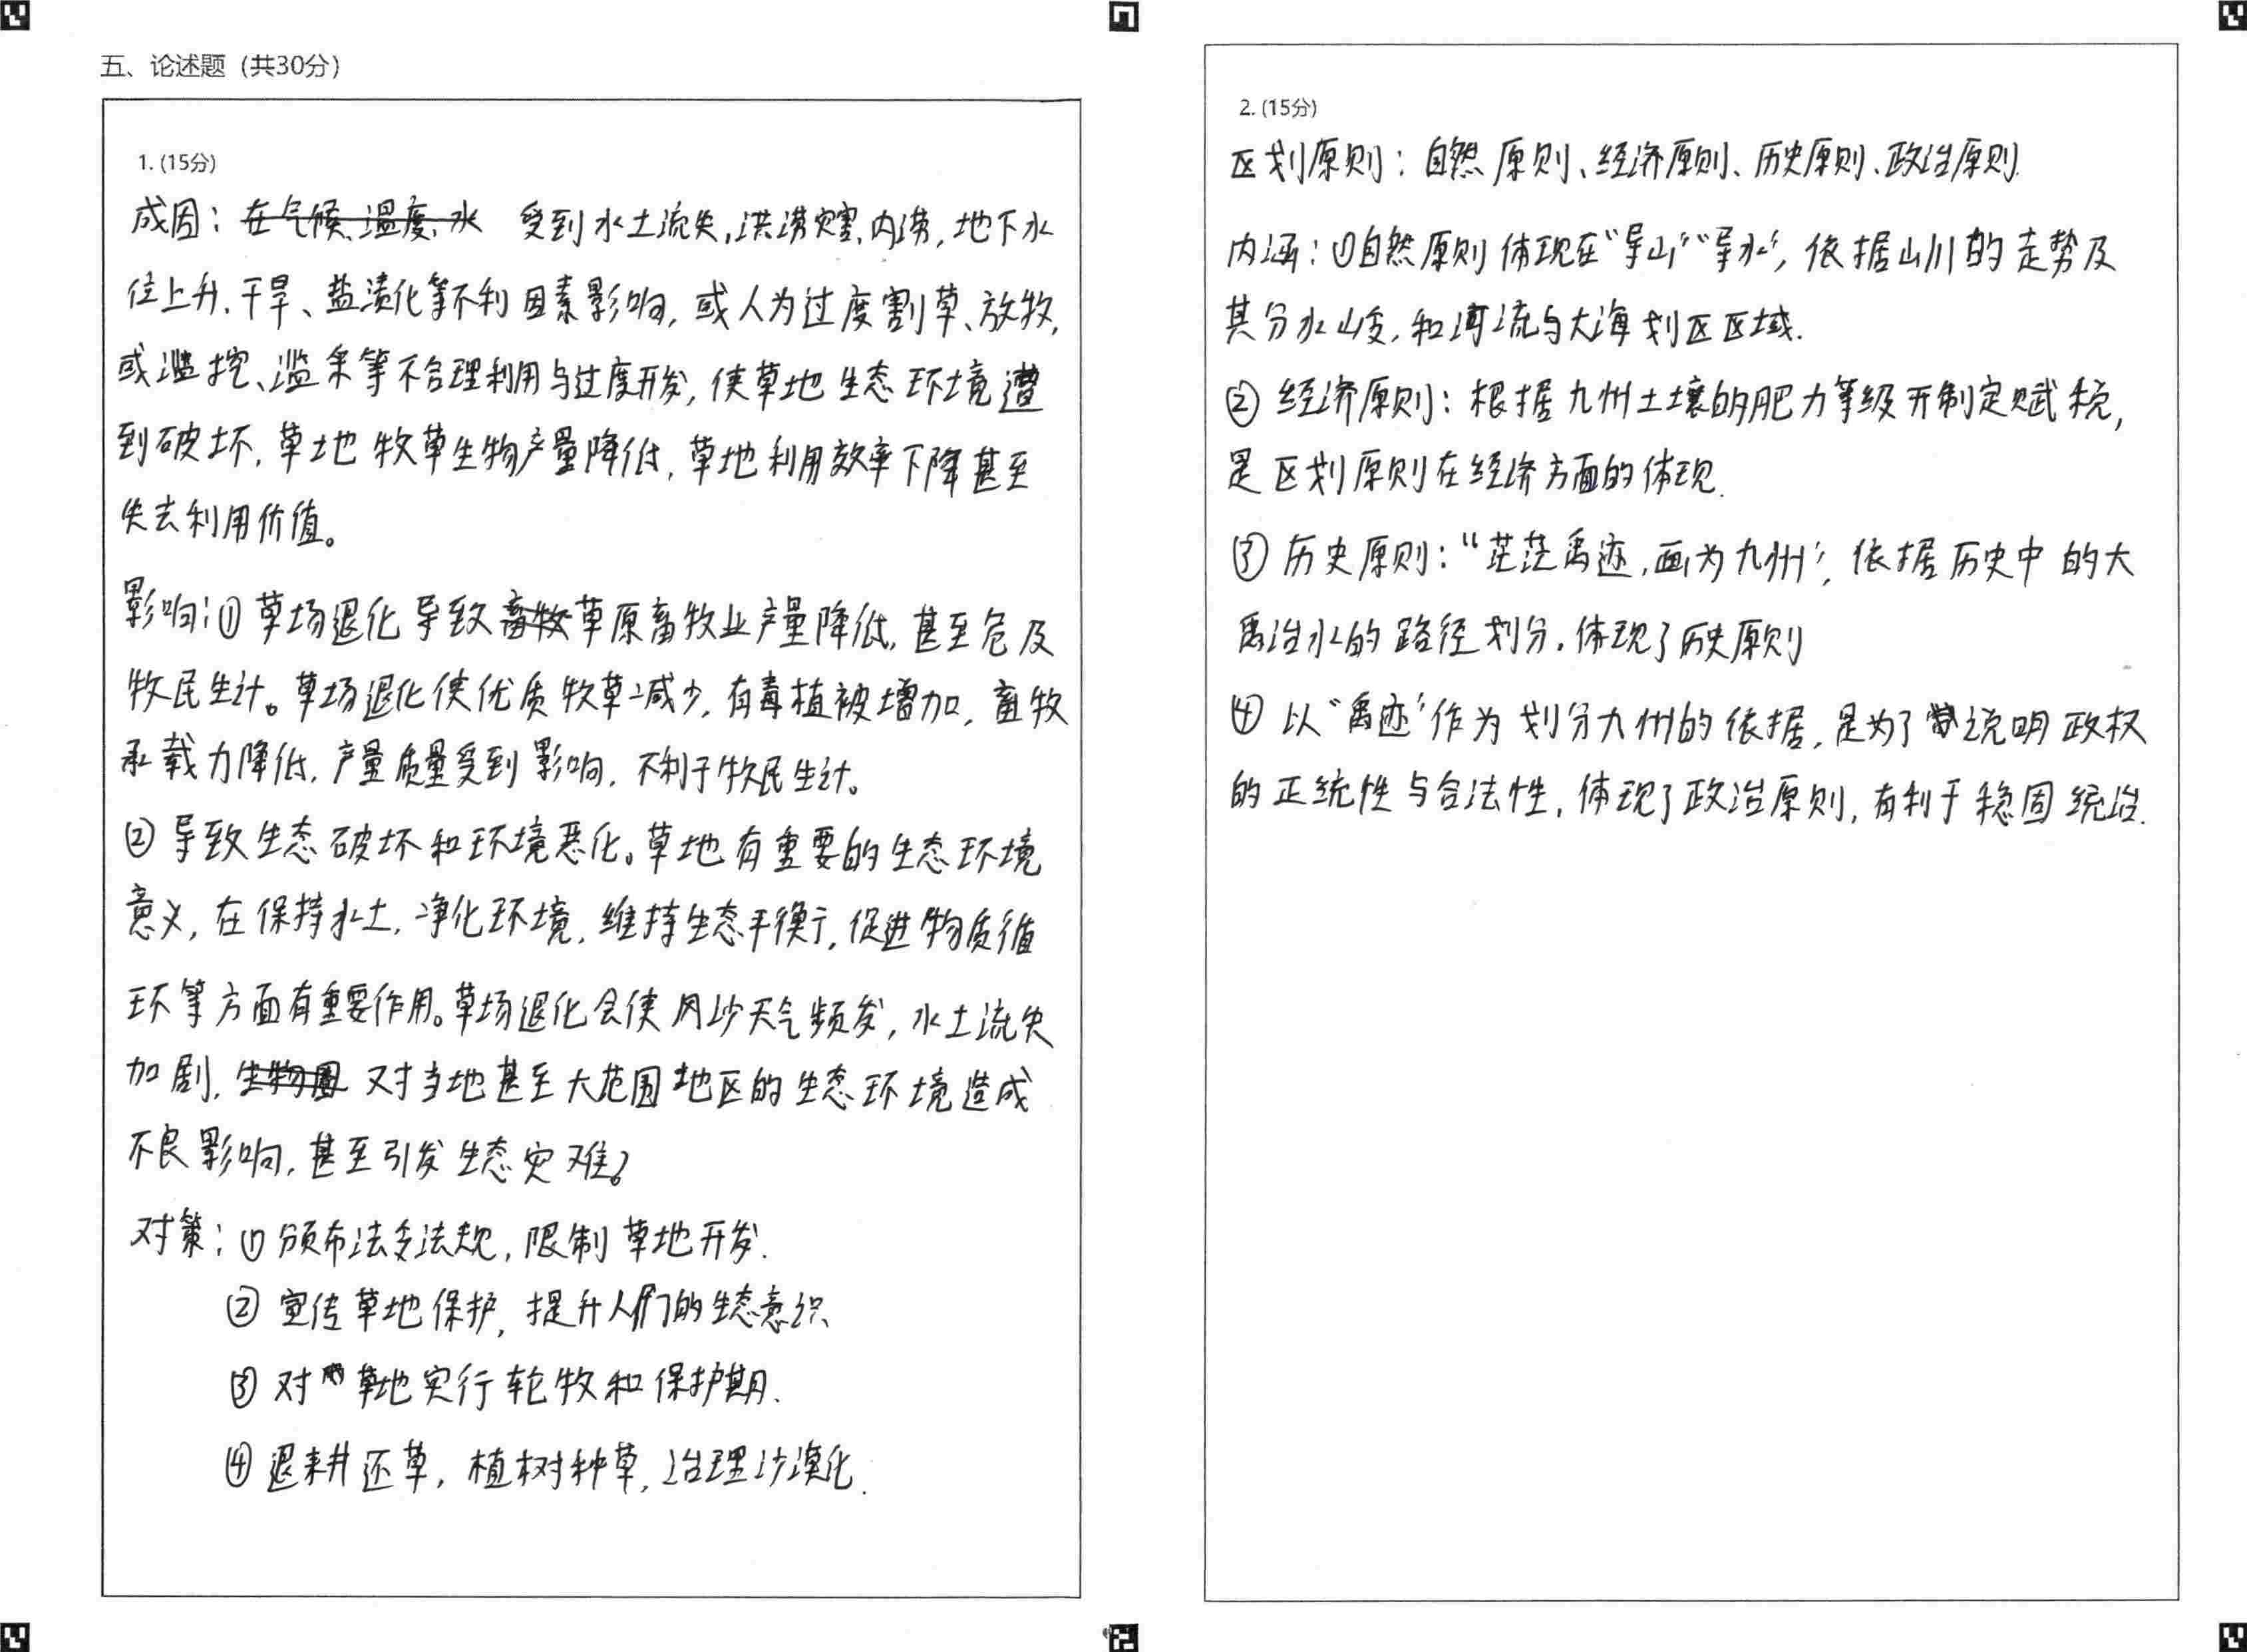 五、论述题（共30分）
1. (15分)
成因：在气候、温度、水 受到水土流失，洪涝灾害、内涝，地下水
位上升、干旱、盐渍化等不利因素影响，或人为过度割草、放牧，
或滥挖、滥采等不合理利用与过度开发，使草地生态环境遭
到破坏，草地牧草生物产量降低，草地利用效率下降甚至
失去利用价值。
影响：①草场退化导致畜牧草原畜牧业产量降低，甚至危及
牧民生计。草场退化使优质牧草减少，有毒植被增加，畜牧
承载力降低，产量质量受到影响，不利于牧民生计。
②导致生态破坏和环境恶化。草地有重要的生态环境
意义，在保持水土，净化环境，维持生态平衡，促进物质循
环等方面有重要作用。草场退化会使风沙天气频发，水土流失
加剧，生物圈 对当地甚至大范围地区的生态环境造成
不良影响，甚至引发生态灾难。
对策：①颁布法令法规，限制草地开发.
②宣传草地保护，提升人们的生态意识
③对草地实行轮牧和保护期.
④退耕还草，植树种草，治理沙漠化.
2. (15分)
区划原则：自然原则、经济原则、历史原则、政治原则.
内涵：①自然原则体现在“导山”“导水”，依据山川的走势及
其分水岐，和河流与大海划区区域.
②经济原则：根据九州土壤的肥力等级开制定赋税，
是区划原则在经济方面的体现.
③历史原则：“茫茫禹迹，画为九州”，依据历史中的大
禹治水的路径划分，体现了历史原则
④以“禹迹”作为划分九州的依据，是为了说明政权
的正统性与合法性，体现了政治原则，有利于稳固统治.